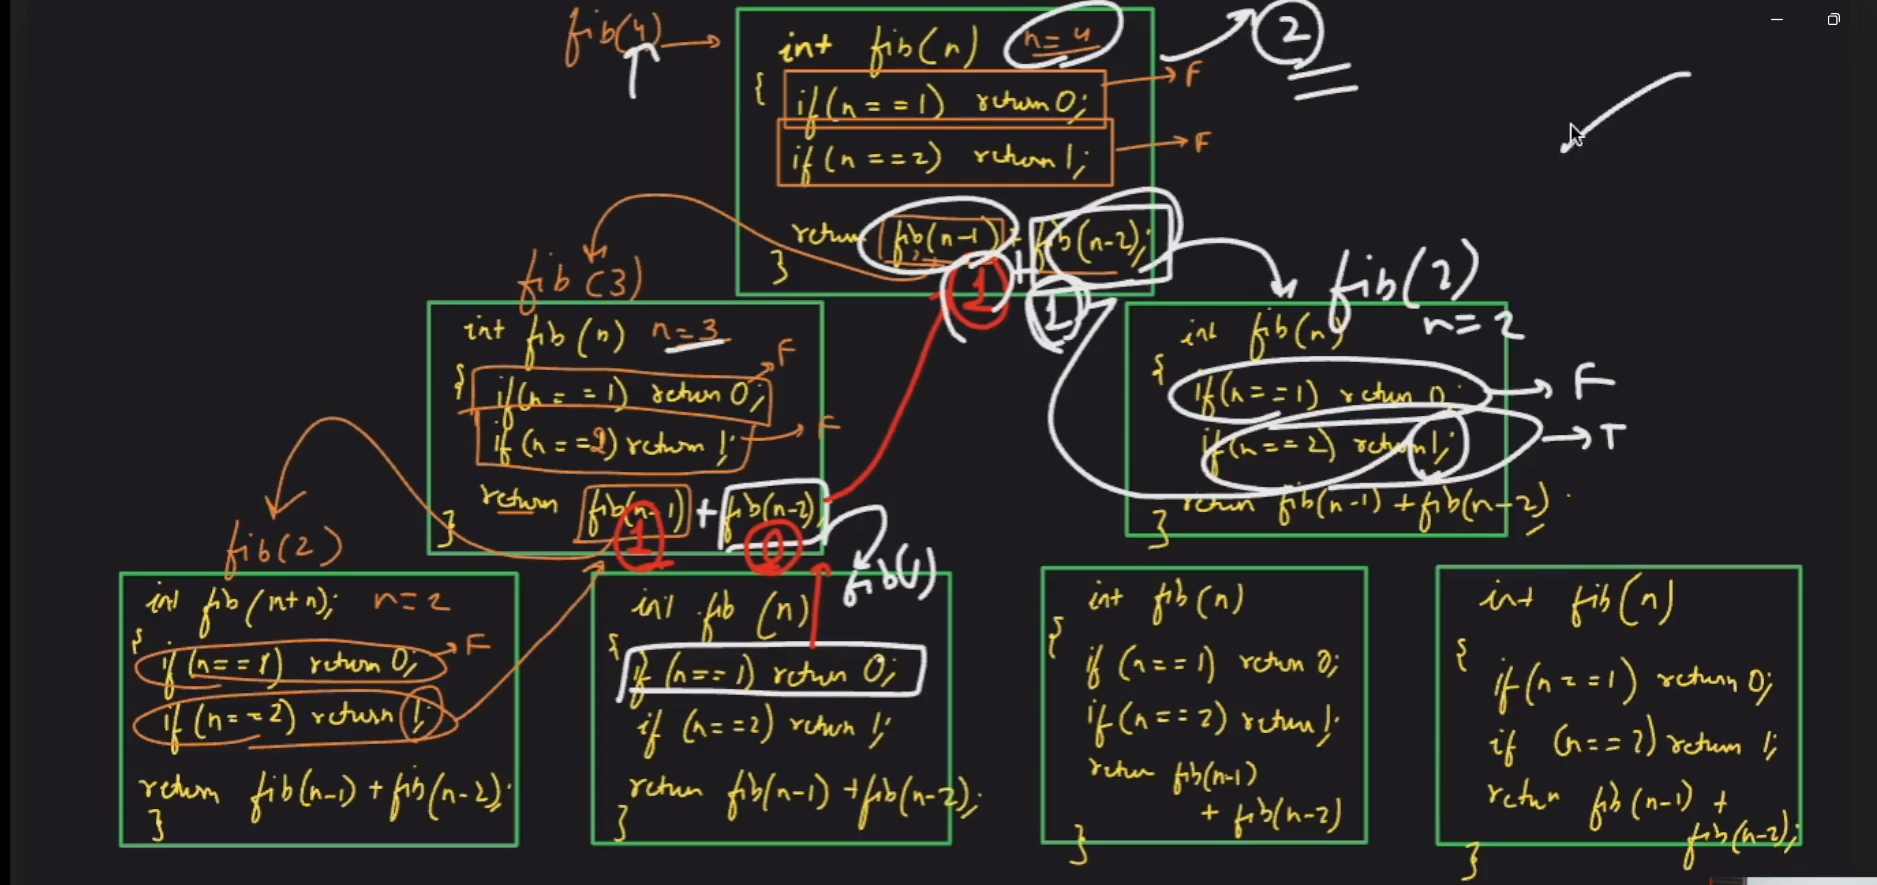 fib(4)
int fib(n) n=4
2
{
if(n==1) return 0; F
if(n==2) return 1; F
return fib(n-1) + fib(n-2);
}
1 + 1
fib(3)
int fib(n) n=3
{
if(n==1) return 0; F
if(n==2) return 1; F
return fib(n-1) + fib(n-2);
}
1 0
fib(2)
n=2
int fib(n)
{
if(n==1) return 0; F
if(n==2) return 1; T
return fib(n-1) + fib(n-2)
}
fib(2)
int fib(n+n); n=2
{
if(n==1) return 0; F
if(n==2) return 1;
return fib(n-1) + fib(n-2);
}
fib(1)
int fib (n)
{
if(n==1) return 0;
if(n==2) return 1;
return fib(n-1) + fib(n-2);
}
int fib(n)
{
if(n==1) return 0;
if(n==2) return 1;
return fib(n-1)
+ fib(n-2)
}
int fib(n)
{
if(n==1) return 0;
if (n==2) return 1;
return fib(n-1) +
fib(n-2);
}